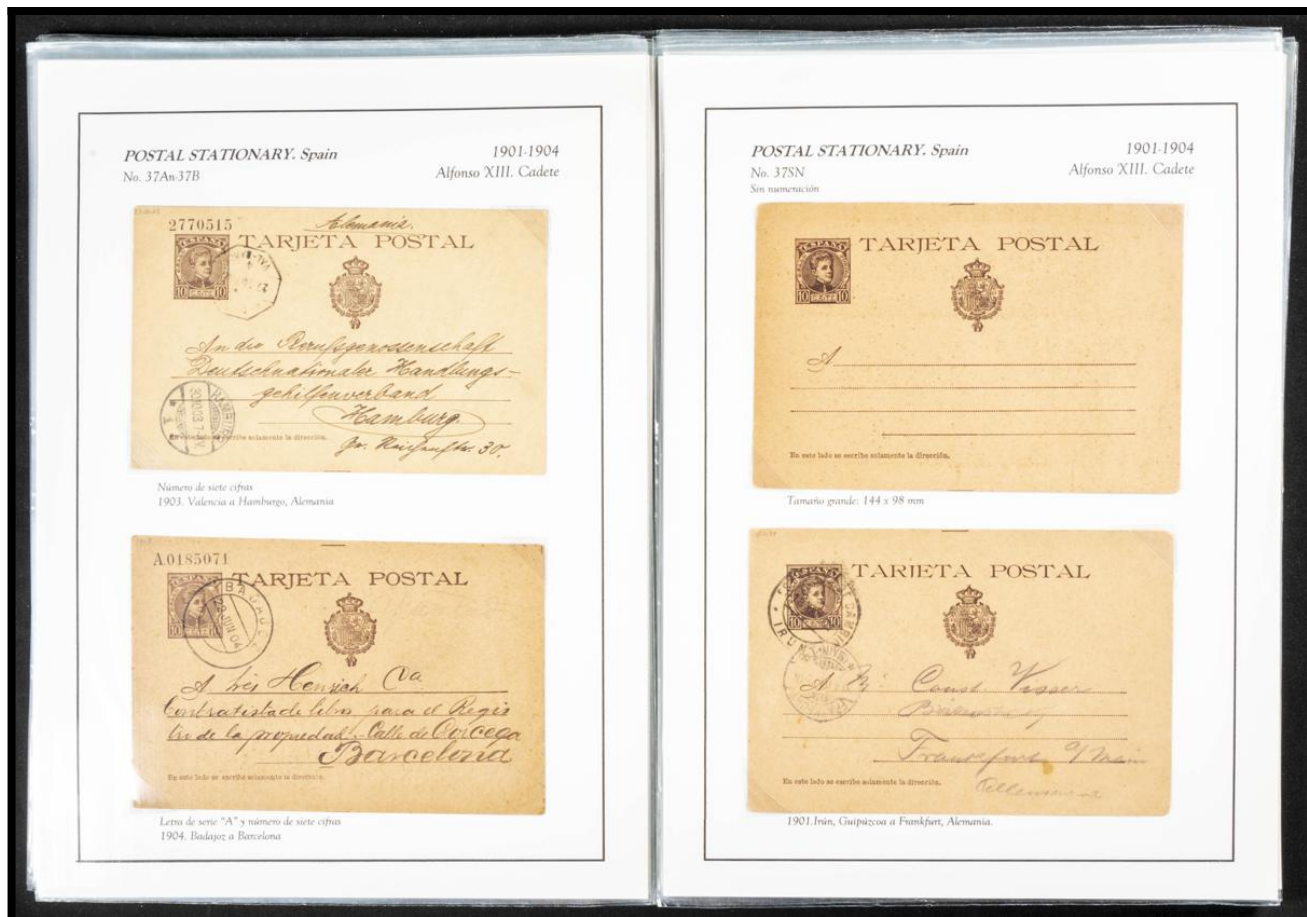 POSTAL STATIONARY. Spain
1901-1904
No. 37An-37B
Alfonso XIII. Cadete
2770515
Alemania.
TARJETA POSTAL
ESPAÑA
10 CENTS 10
An die Berufsgenossenschaft
Deutschnationaler Handlungs-
gehilfenverband
Hamburg
HAMBURG
En este lado se escribe solamente la dirección.
Gr. Reichenstr. 30.
Número de siete cifras
1903. Valencia a Hamburgo, Alemania
A.0185071
TARJETA POSTAL
ESPAÑA
10 CENTS 10
28 JUN 04
A
Contratista de libros para el Regis
tro de la propiedad - Calle de Corcega
Barcelona
En este lado se escribe solamente la dirección.
Letra de serie "A" y número de siete cifras
1904. Badajoz a Barcelona
POSTAL STATIONARY. Spain
1901-1904
No. 37SN
Alfonso XIII. Cadete
Sin numeración
TARJETA POSTAL
ESPAÑA
10 CENTS 10
A
En este lado se escribe solamente la dirección.
Tamaño grande: 144 x 98 mm
TARJETA POSTAL
10 CENTS 10
IRUN
A
Const. Visser
Frankfurt a/Main
En este lado se escribe solamente la dirección.
1901.Irún, Guipúzcoa a Frankfurt, Alemania.